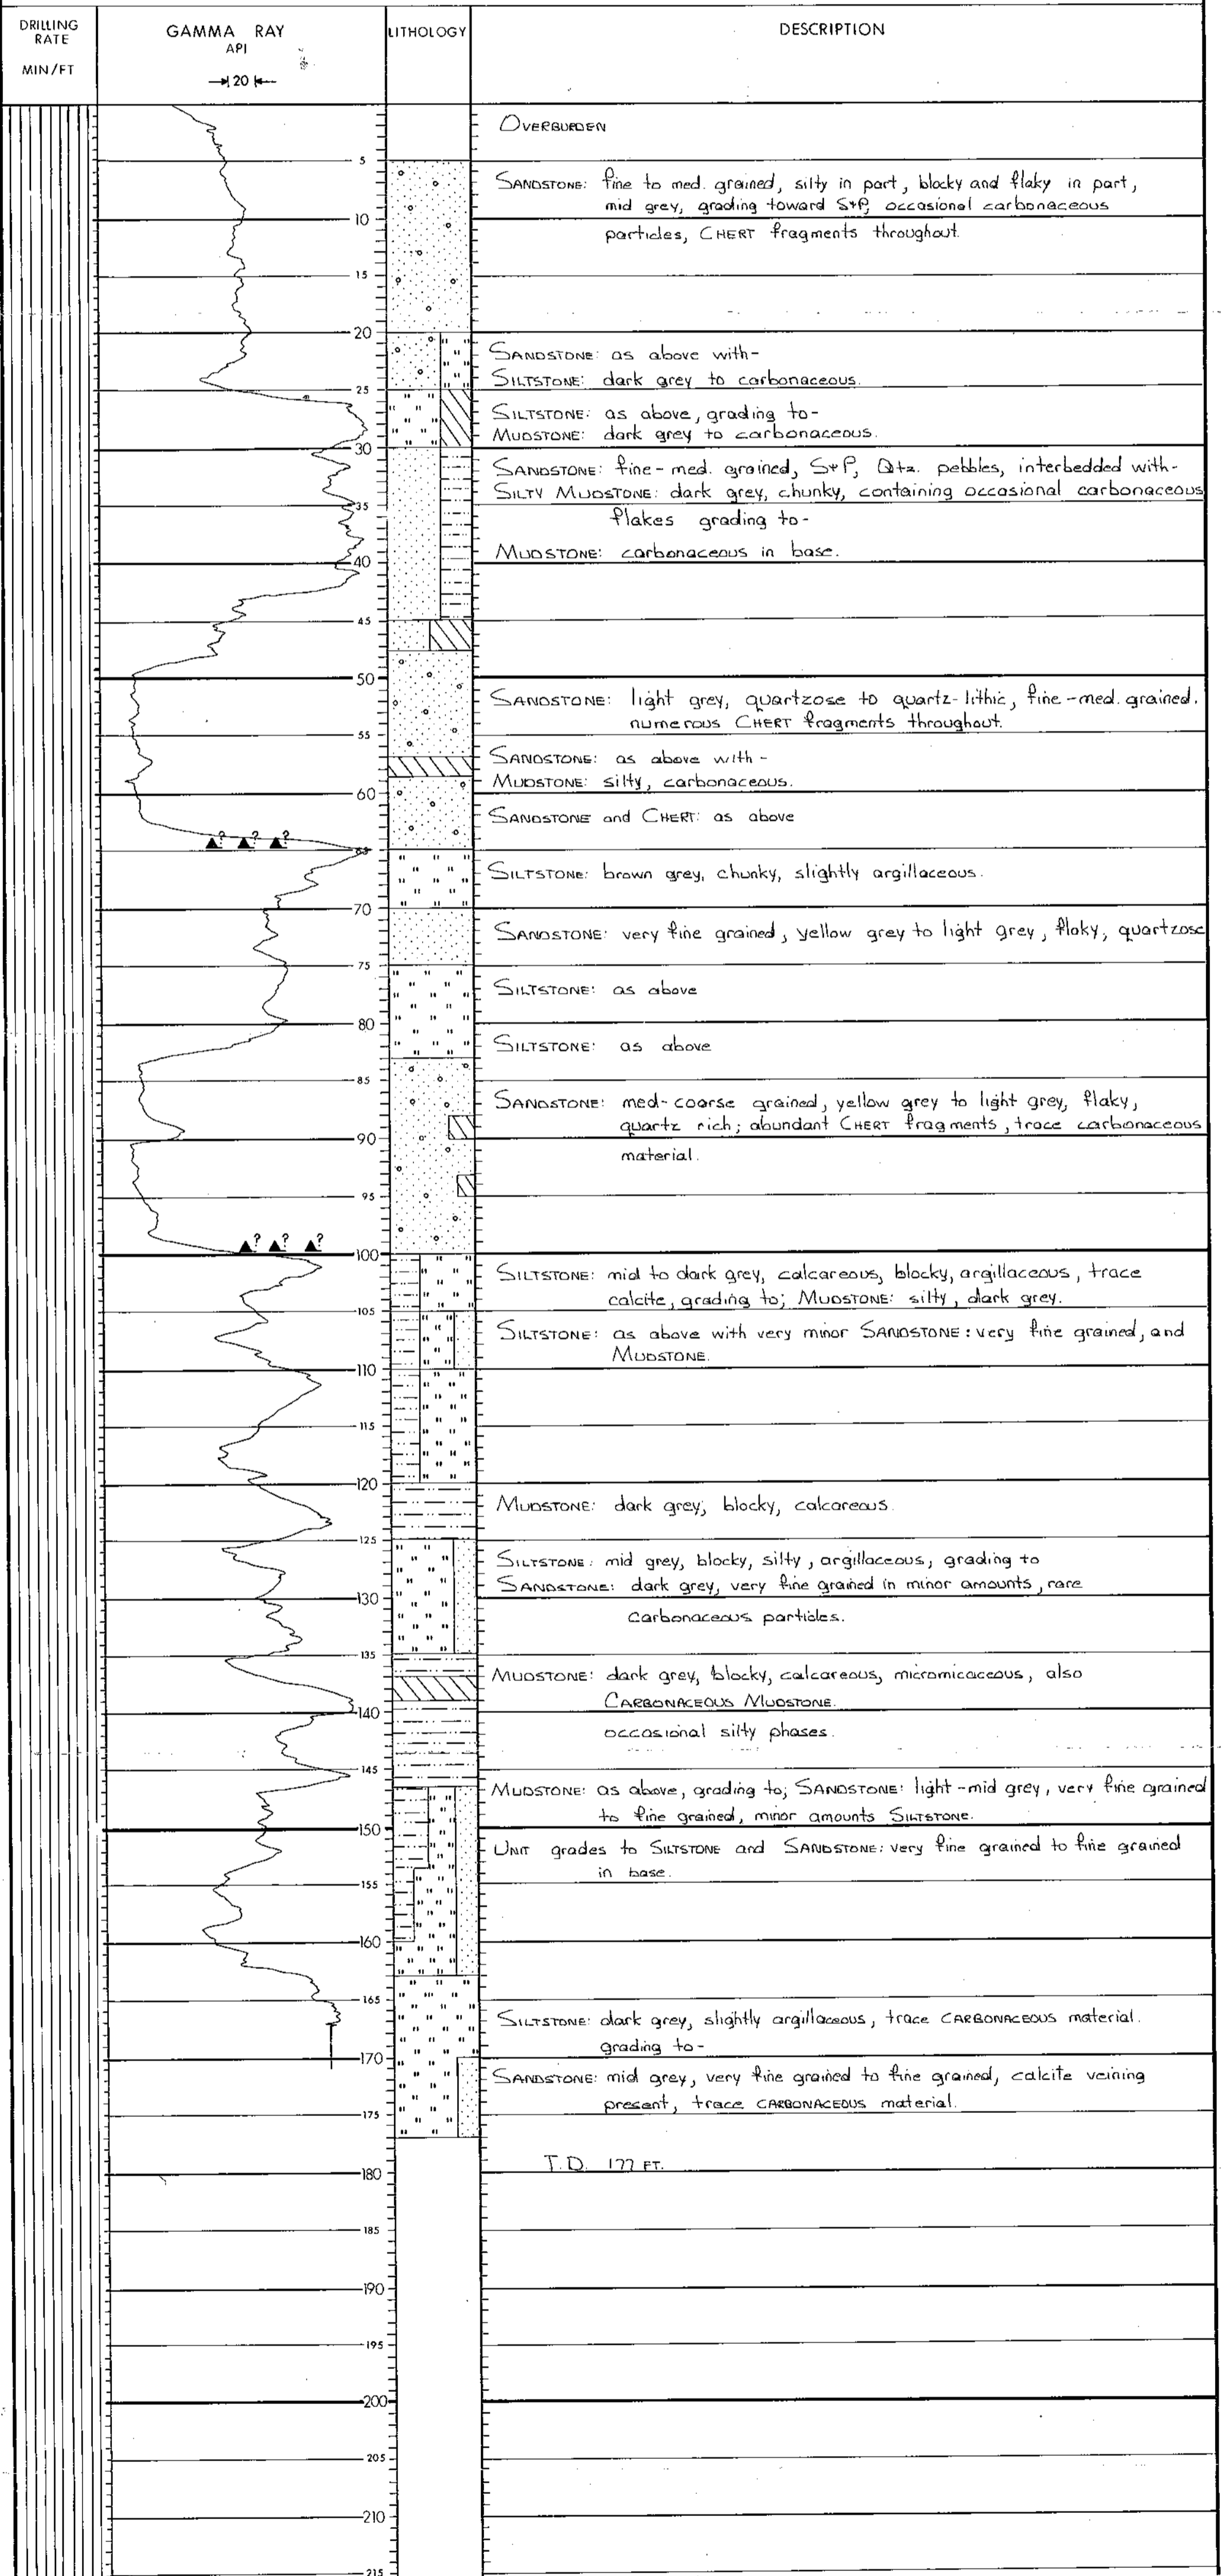 DRILLING
RATE
MIN/FT
GAMMA RAY
API
20
LITHOLOGY
DESCRIPTION
OVERBURDEN
5
SANDSTONE: fine to med. grained, silty in part, blocky and flaky in part,
mid grey, grading toward S+P, occasional carbonaceous
10
particles, CHERT fragments throughout.
15
20
SANDSTONE: as above with-
SILTSTONE: dark grey to carbonaceous.
25
SILTSTONE: as above, grading to-
MUDSTONE: dark grey to carbonaceous.
30
SANDSTONE: fine-med. grained, S+P, Qtz. pebbles, interbedded with-
SILTY MUDSTONE: dark grey, chunky, containing occasional carbonaceous
35
flakes grading to-
MUDSTONE: carbonaceous in base.
40
45
50
SANDSTONE: light grey, quartzose to quartz-lithic, fine-med. grained.
numerous CHERT fragments throughout.
55
SANDSTONE: as above with-
MUDSTONE: silty, carbonaceous.
60
SANDSTONE and CHERT: as above
? ? ?
65
SILTSTONE: brown grey, chunky, slightly argillaceous.
70
SANDSTONE: very fine grained, yellow grey to light grey, flaky, quartzose
75
SILTSTONE: as above
80
SILTSTONE: as above
85
SANDSTONE: med-coarse grained, yellow grey to light grey, flaky,
quartz rich; abundant CHERT fragments, trace carbonaceous
90
material.
95
? ? ?
100
SILTSTONE: mid to dark grey, calcareous, blocky, argillaceous, trace
calcite, grading to; MUDSTONE: silty, dark grey.
105
SILTSTONE: as above with very minor SANDSTONE: very fine grained, and
MUDSTONE.
110
115
120
MUDSTONE: dark grey, blocky, calcareous.
125
SILTSTONE: mid grey, blocky, silty, argillaceous, grading to
SANDSTONE: dark grey, very fine grained in minor amounts, rare
130
Carbonaceous particles.
135
MUDSTONE: dark grey, blocky, calcareous, micromicaceous, also
CARBONACEOUS MUDSTONE.
140
occasional silty phases.
145
MUDSTONE: as above, grading to; SANDSTONE: light-mid grey, very fine grained
to fine grained, minor amounts SILTSTONE.
150
UNIT grades to SILTSTONE and SANDSTONE: very fine grained to fine grained
in base.
155
160
165
SILTSTONE: dark grey, slightly argillaceous, trace CARBONACEOUS material.
grading to-
170
SANDSTONE: mid grey, very fine grained to fine grained, calcite veining
present, trace CARBONACEOUS material.
175
T.D. 177 FT.
180
185
190
195
200
205
210
215